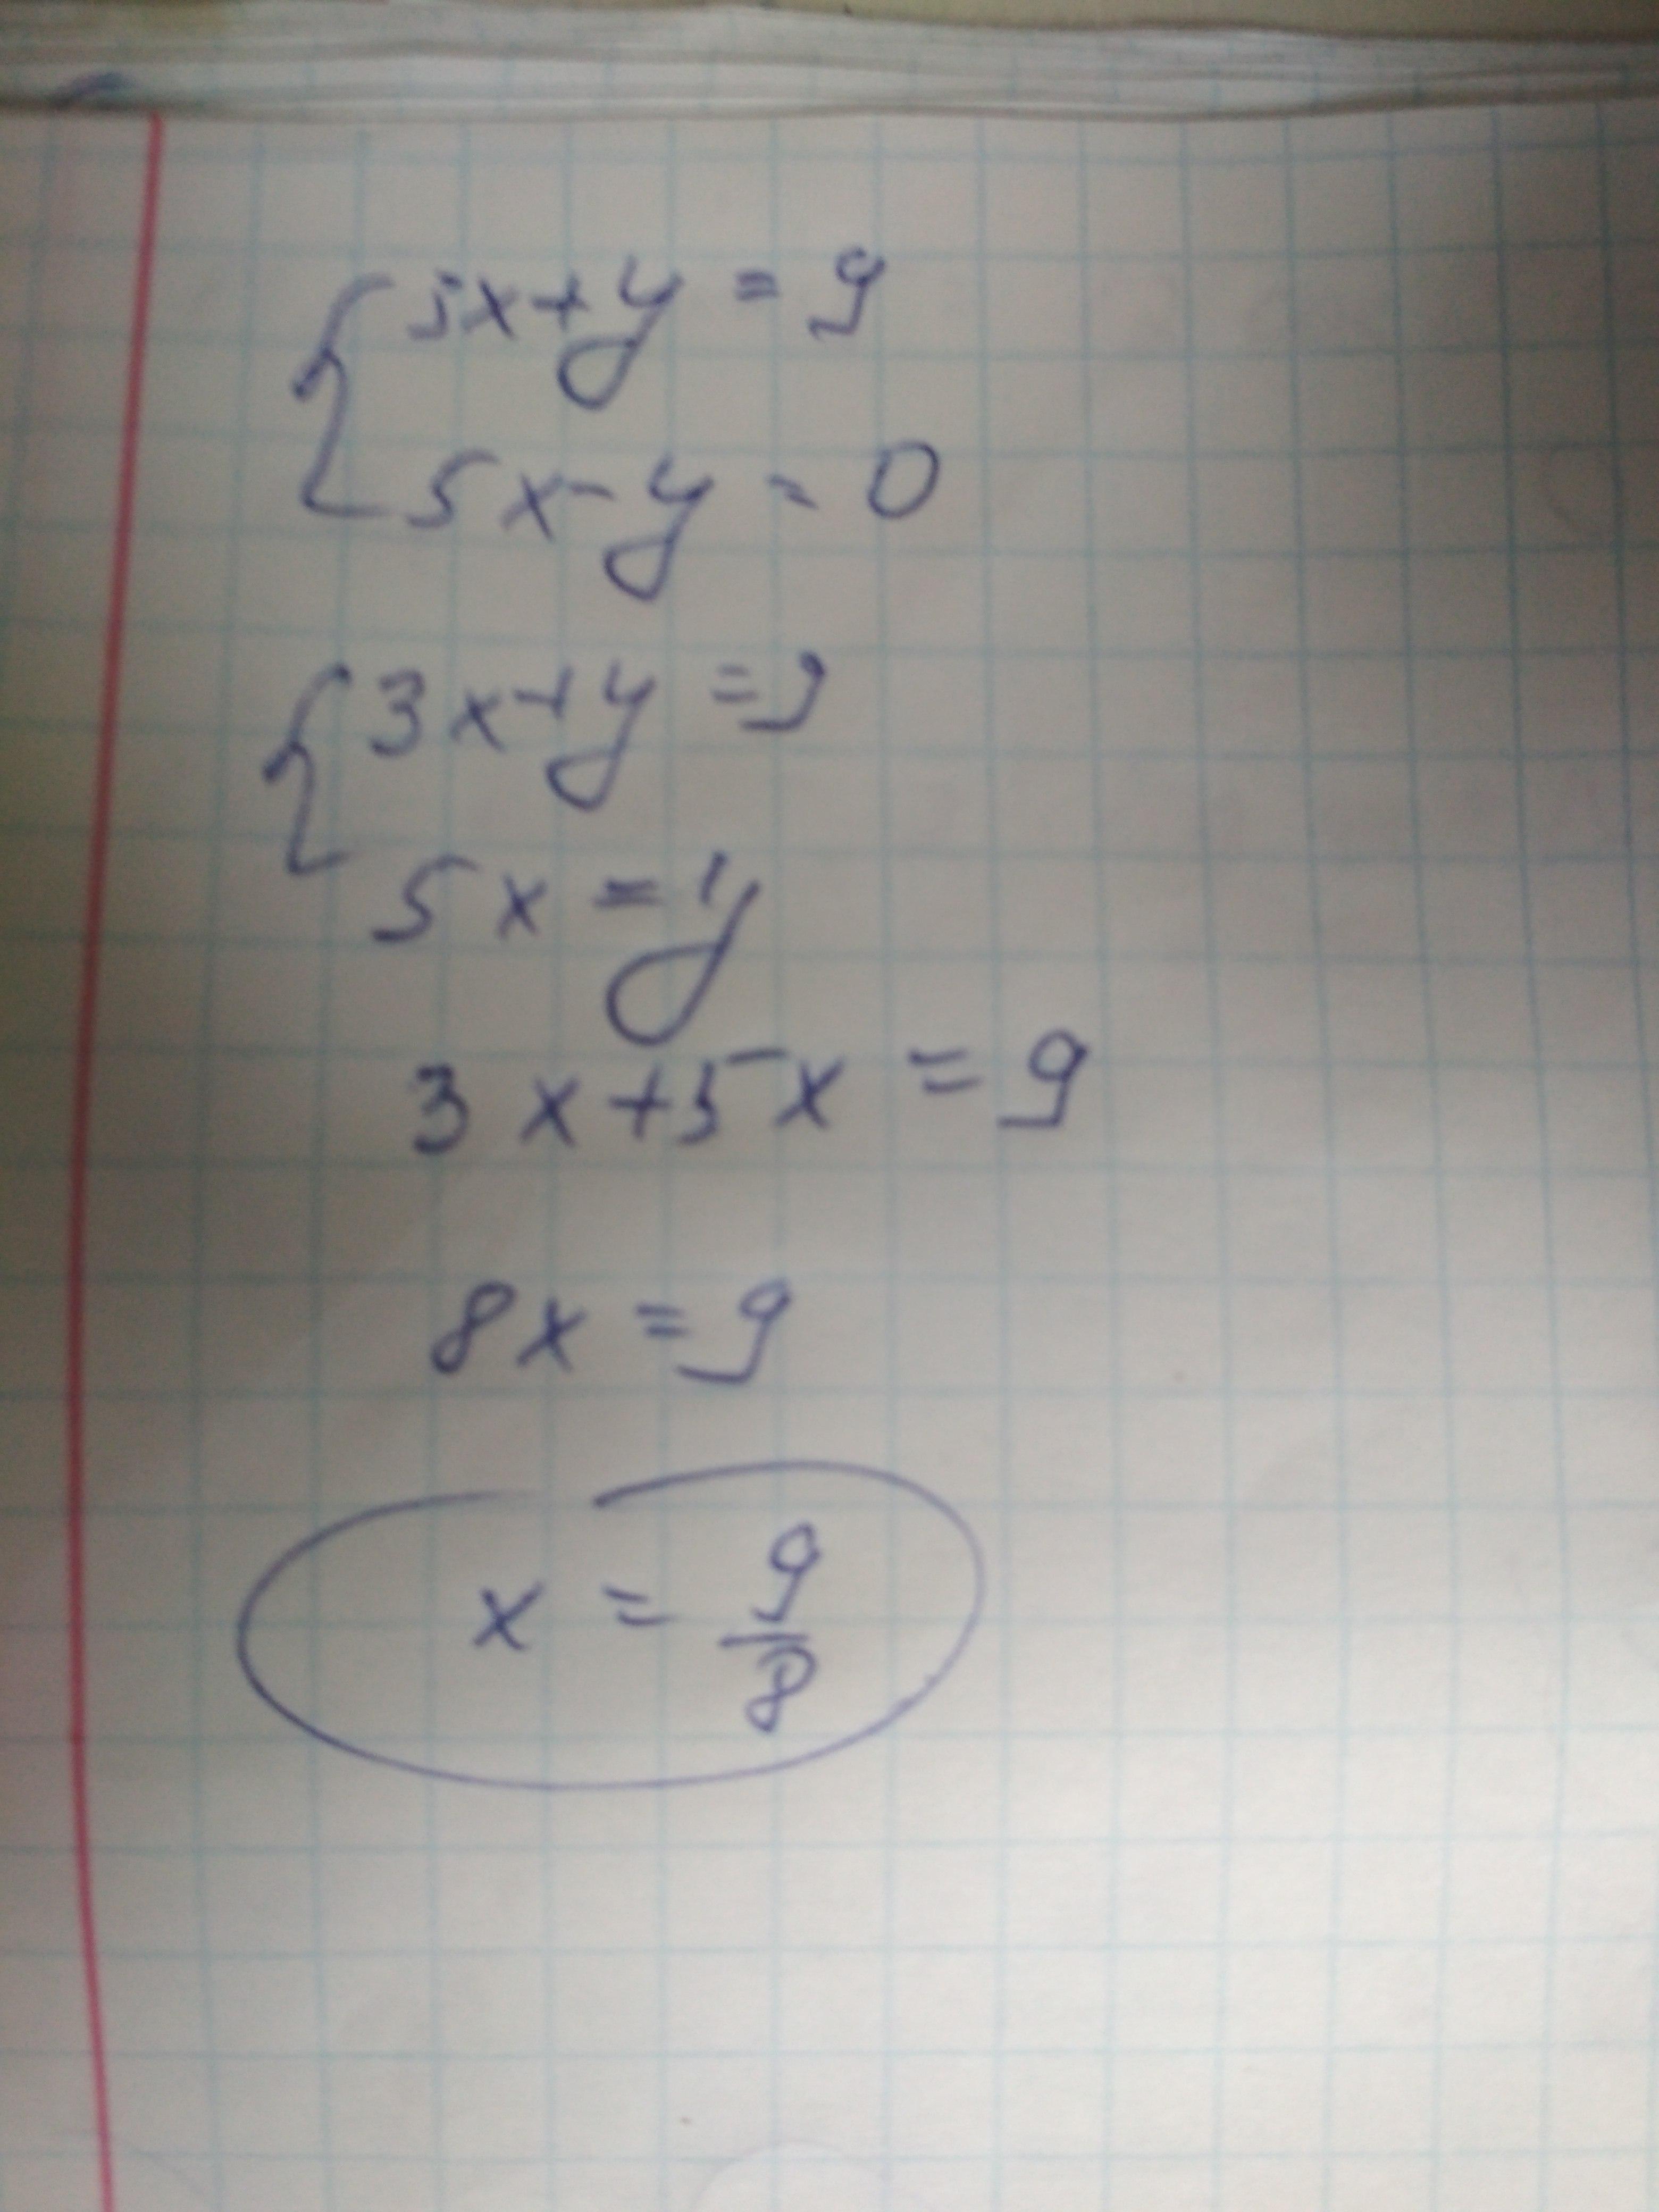 { 5x+y = 9
5x-y = 0
{ 3x+y = 9
5x = y
3x+5x = 9
8x = 9
x = 9/8